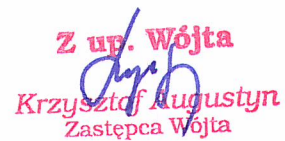 Z up. Wójta
Krzysztof Augustyn
Zastępca Wójta